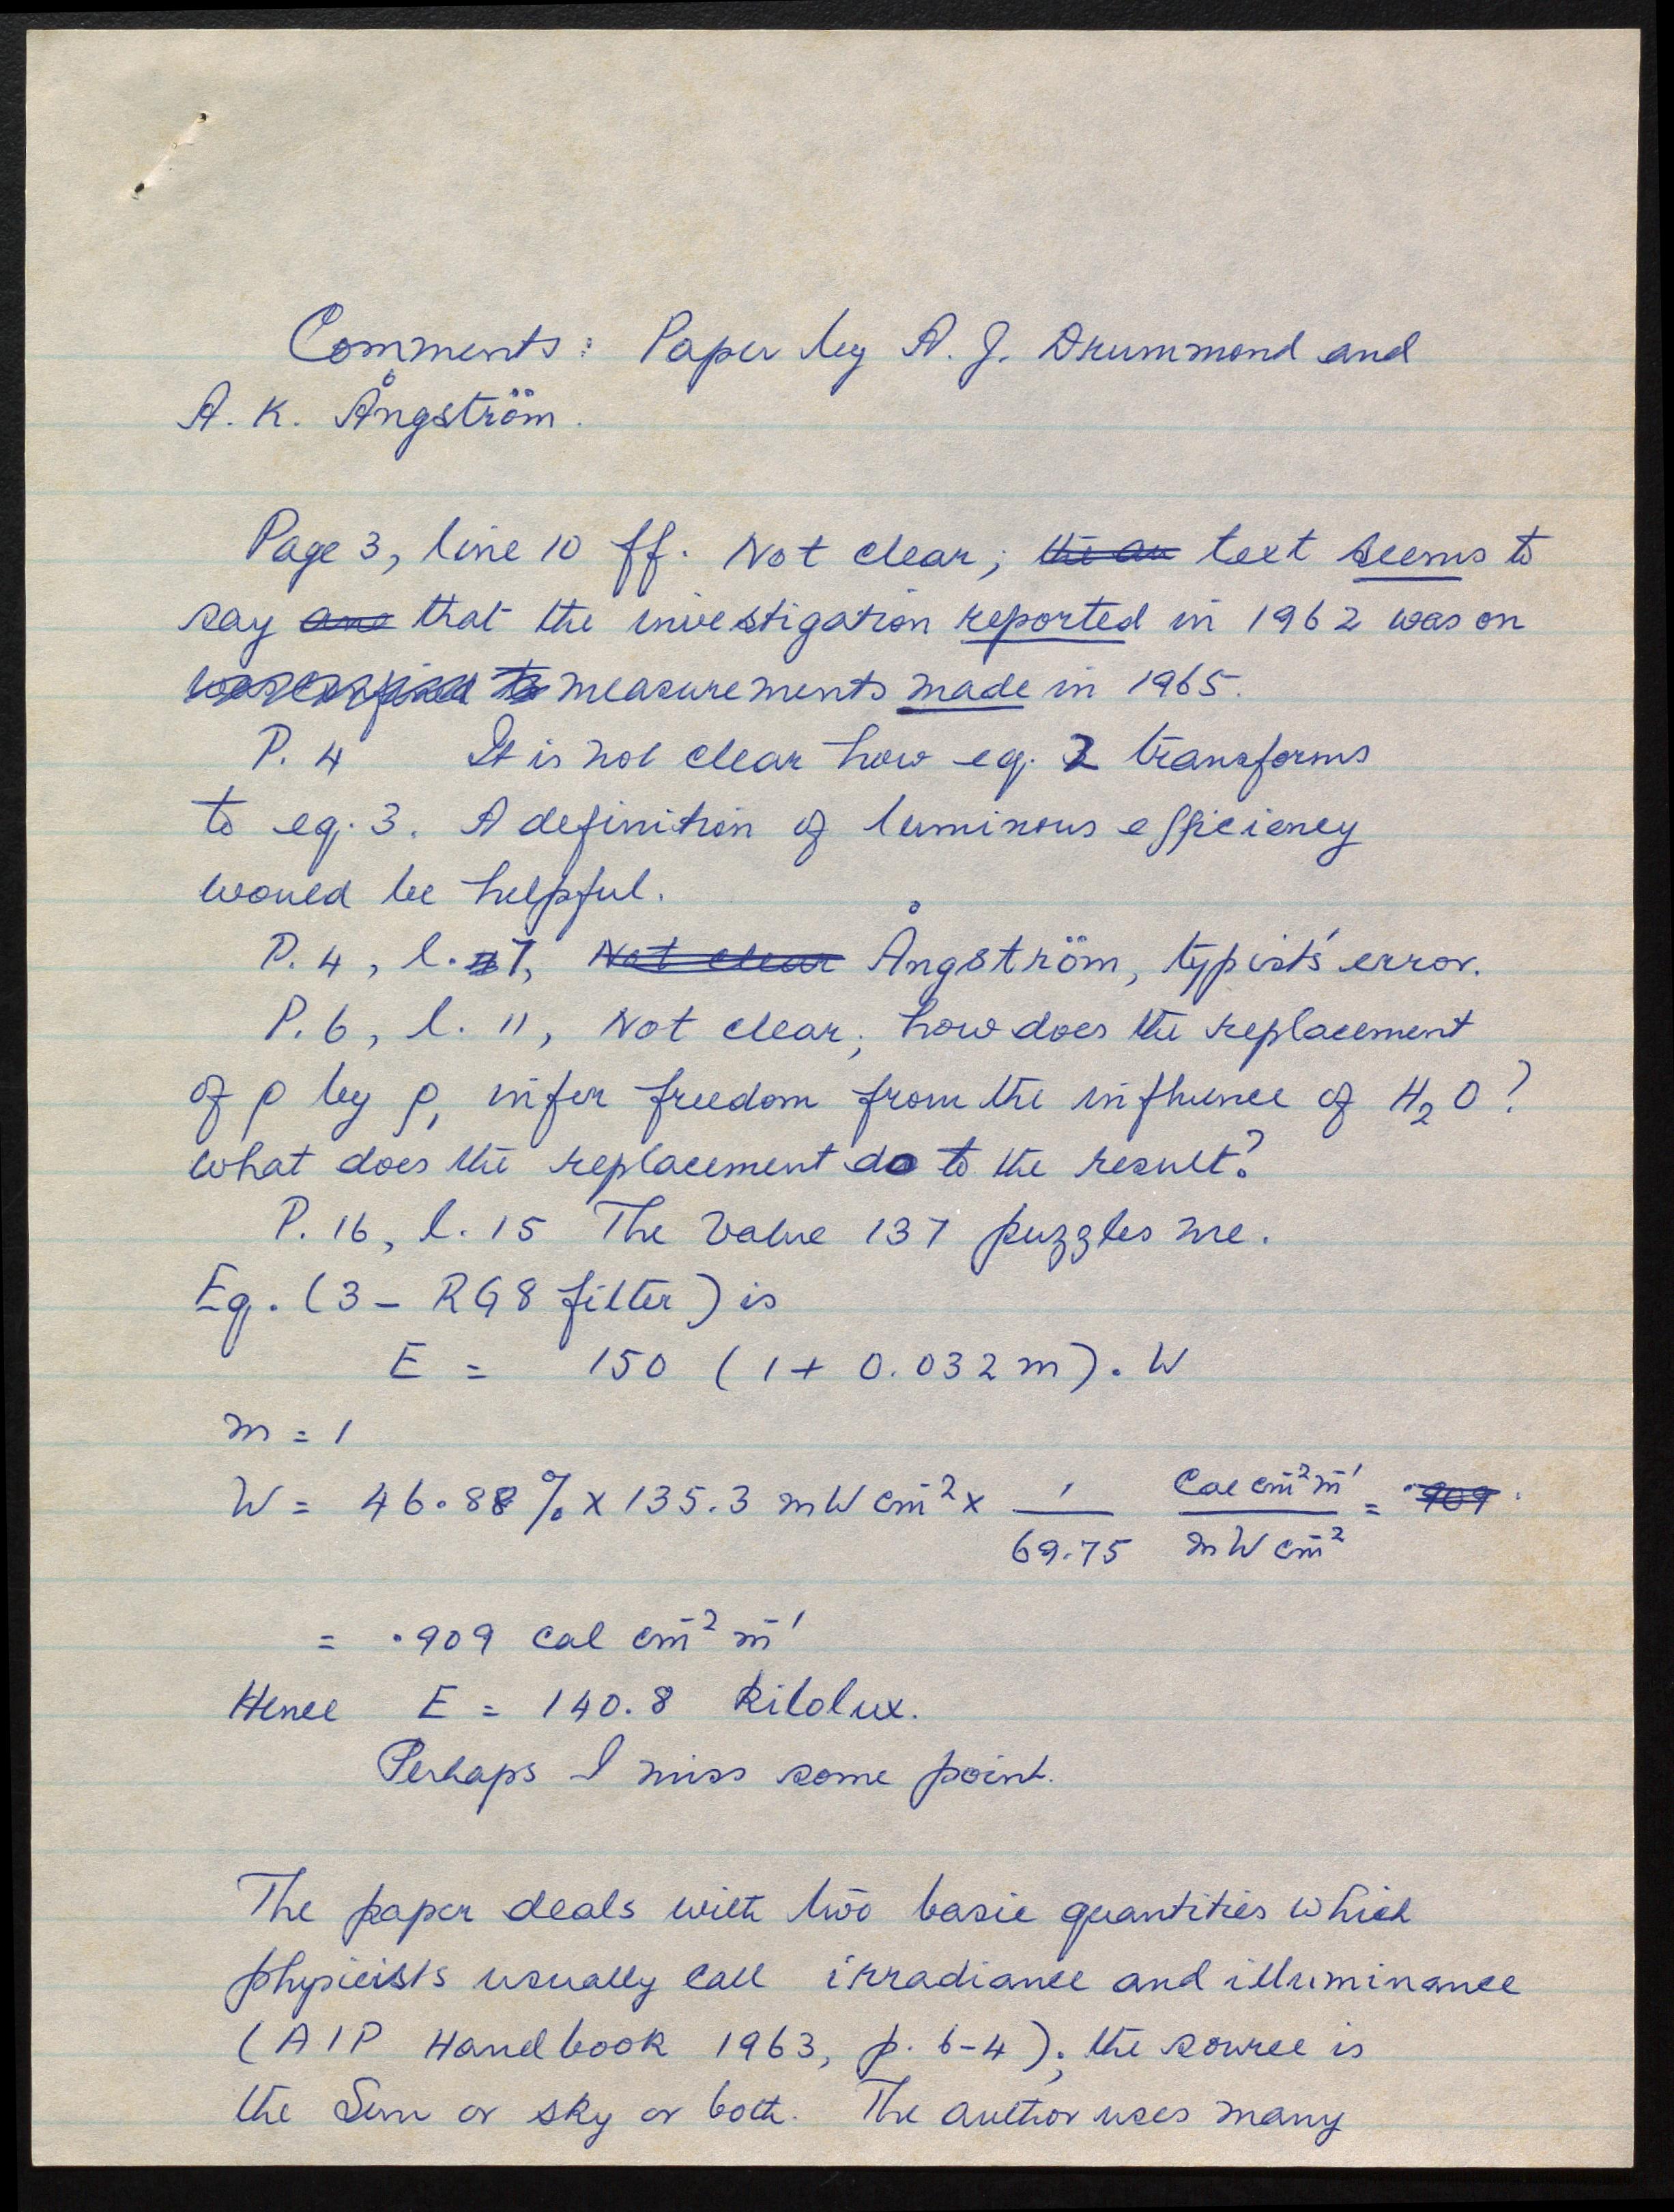 Comments: Paper by A. J. Drummond and
A. K. Ångström.
Page 3, line 10 ff. Not clear; the au text seems to
say ano that the investigation reported in 1962 was on
was confined to measurements made in 1965.
P. 4 It is not clear how eq. 2 transforms
to eq. 3. A definition of luminous efficiency
would be helpful.
P. 4, l. 7, Not clear Ångström, typist's error.
P. 6, l. 11, Not clear; how does the replacement
of ρ by ρ₁ infer freedom from the influence of H₂O?
What does the replacement do to the result?
P. 16, l. 15 The value 137 puzzles me.
Eq. (3 – RG8 filter) is
E = 150 (1 + 0.032 m). W
m = 1
W = 46.88 % x 135.3 mW cm⁻² x 1/69.75 Cal cm⁻² m⁻¹/mW cm⁻² = .909
= .909 cal cm⁻² m⁻¹
Hence E = 140.8 kilolux.
Perhaps I miss some point.
The paper deals with two basic quantities which
physicists usually call irradiance and illuminance
(AIP Handbook 1963, p. 6-4); the source is
the Sun or sky or both. The author uses many